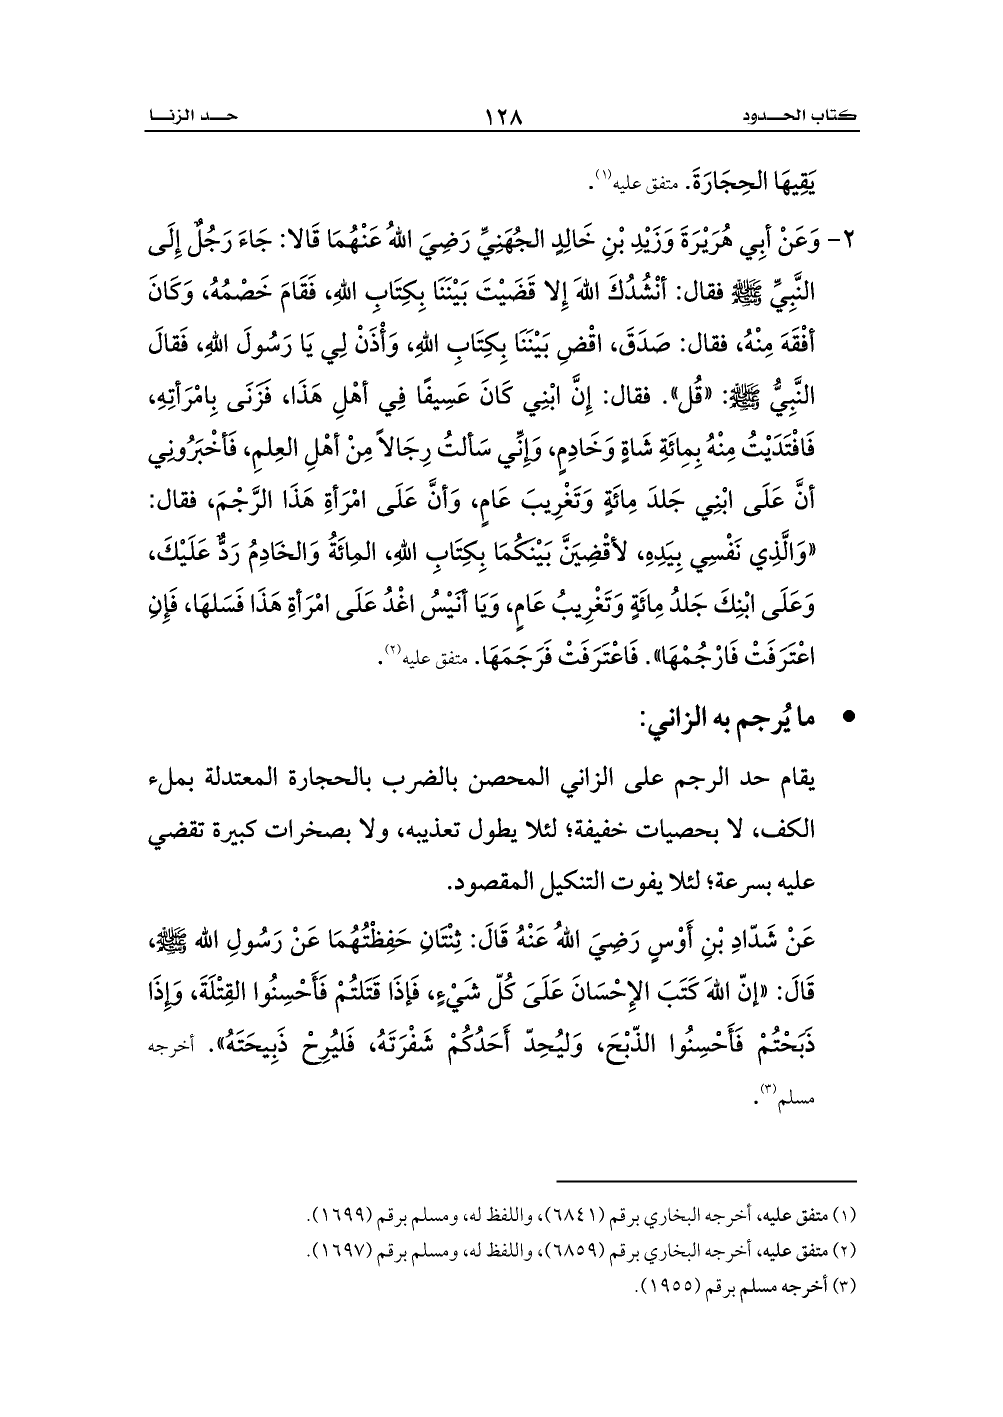 كتاب الحـــدود ١٢٨ حـــد الزنـــا
يَقِيهَا الحِجَارَةَ. متفق عليه(١).
٢- وَعَنْ أبِي هُرَيْرَةَ وَزَيْدِ بْنِ خَالِدٍ الجُهَنِيِّ رَضِيَ اللهُ عَنْهُمَا قَالا: جَاءَ رَجُلٌ إِلَى
النَّبِيِّ ﷺ فقال: أنْشُدُكَ اللهَ إِلا قَضَيْتَ بَيْنَنَا بِكِتَابِ اللهِ، فَقَامَ خَصْمُهُ، وَكَانَ
أفْقَهَ مِنْهُ، فقال: صَدَقَ، اقْضِ بَيْنَنَا بِكِتَابِ اللهِ، وَأْذَنْ لِي يَا رَسُولَ اللهِ، فَقالَ
النَّبِيُّ ﷺ: «قُل». فقال: إِنَّ ابْنِي كَانَ عَسِيفًا فِي أهْلِ هَذَا، فَزَنَى بِامْرَأتِهِ،
فَافْتَدَيْتُ مِنْهُ بِمِائَةِ شَاةٍ وَخَادِمٍ، وَإِنِّي سَألتُ رِجَالاً مِنْ أهْلِ العِلمِ، فَأخْبَرُونِي
أنَّ عَلَى ابْنِي جَلدَ مِائَةٍ وَتَغْرِيبَ عَامٍ، وَأنَّ عَلَى امْرَأةِ هَذَا الرَّجْمَ، فقال:
«وَالَّذِي نَفْسِي بِيَدِهِ، لأقْضِيَنَّ بَيْنَكُمَا بِكِتَابِ اللهِ، المِائَةُ وَالخَادِمُ رَدٌّ عَلَيْكَ،
وَعَلَى ابْنِكَ جَلدُ مِائَةٍ وَتَغْرِيبُ عَامٍ، وَيَا أنَيْسُ اغْدُ عَلَى امْرَأةِ هَذَا فَسَلهَا، فَإِنِ
اعْتَرَفَتْ فَارْجُمْهَا». فَاعْتَرَفَتْ فَرَجَمَهَا. متفق عليه(٢).
• ما يُرجم به الزاني:
يقام حد الرجم على الزاني المحصن بالضرب بالحجارة المعتدلة بملء
الكف، لا بحصيات خفيفة؛ لئلا يطول تعذيبه، ولا بصخرات كبيرة تقضي
عليه بسرعة؛ لئلا يفوت التنكيل المقصود.
عَنْ شَدّادِ بْنِ أَوْسٍ رَضِيَ اللهُ عَنْهُ قَالَ: ثِنْتَانِ حَفِظْتُهُمَا عَنْ رَسُولِ الله ﷺ،
قَالَ: «إنّ اللهَ كَتَبَ الإِحْسَانَ عَلَىَ كُلّ شَيْءٍ، فَإذَا قَتَلتُمْ فَأَحْسِنُوا القِتْلَةَ، وَإِذَا
ذَبَحْتُمْ فَأَحْسِنُوا الذّبْحَ، وَليُحِدّ أَحَدُكُمْ شَفْرَتَهُ، فَليُرِحْ ذَبِيحَتَهُ». أخرجه
مسلم(٣).
(١) متفق عليه، أخرجه البخاري برقم (٦٨٤١)، واللفظ له، ومسلم برقم (١٦٩٩).
(٢) متفق عليه، أخرجه البخاري برقم (٦٨٥٩)، واللفظ له، ومسلم برقم (١٦٩٧).
(٣) أخرجه مسلم برقم (١٩٥٥).